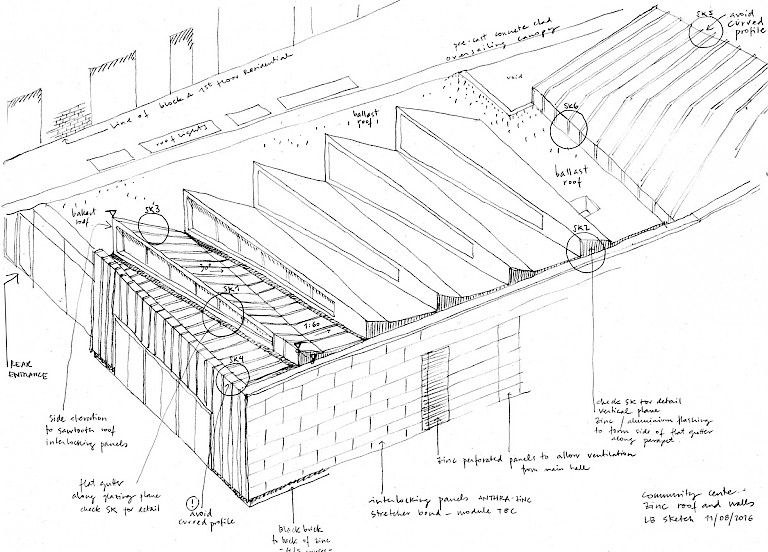 SK5
avoid
curved
profile
pre-cast concrete clad
oversailing canopy
void
SK6
line of block & 1st floor residential
rooflights
ballast
roof
ballast
roof
SK3
ballast
roof
SK2
30°
SK1
1:60
SK4
REAR
ENTRANCE
side elevation
to sawtooth roof
interlocking panels
check SK for detail
vertical plane
zinc / aluminium flashing
to form side of flat gutter
along parapet
zinc perforated panels to allow ventilation
from main hall
flat gutter
along glazing plane
check SK for detail
!
avoid
curved profile
interlocking panels ANTHRA-ZINC
stretcher bond - module TBC
black brick
to back of zinc
community center -
zinc roof and walls
LB sketch 11/08/2016